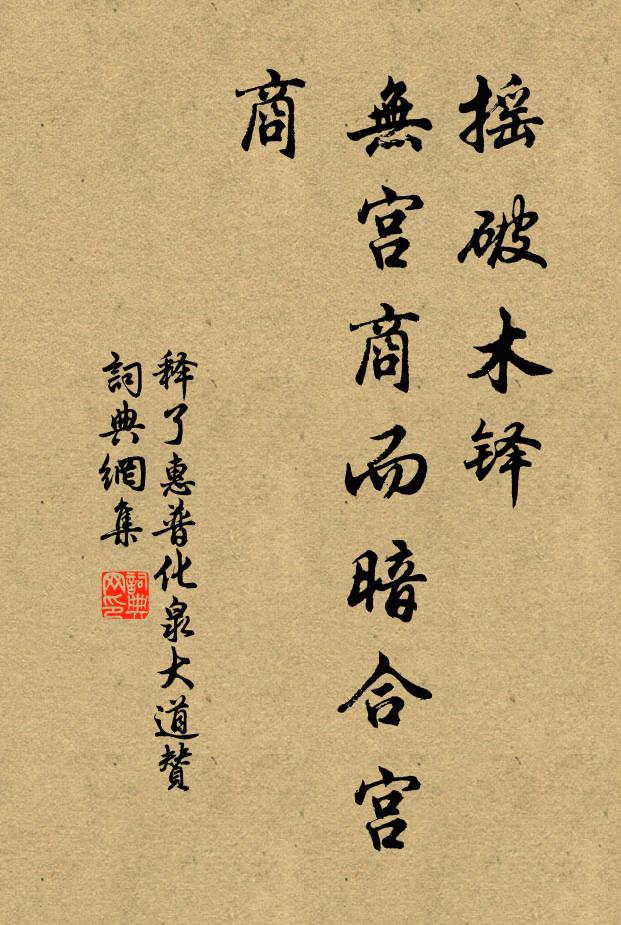 摇破木铎
無宫商而暗合宫
商
释了惠普化泉大道赞
詞典網集
詞典网印